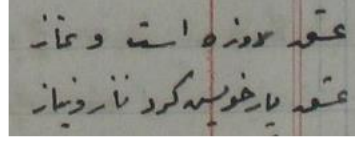 عشق روزه است و نماز
عشق یار خویش کرد ناز و نیاز